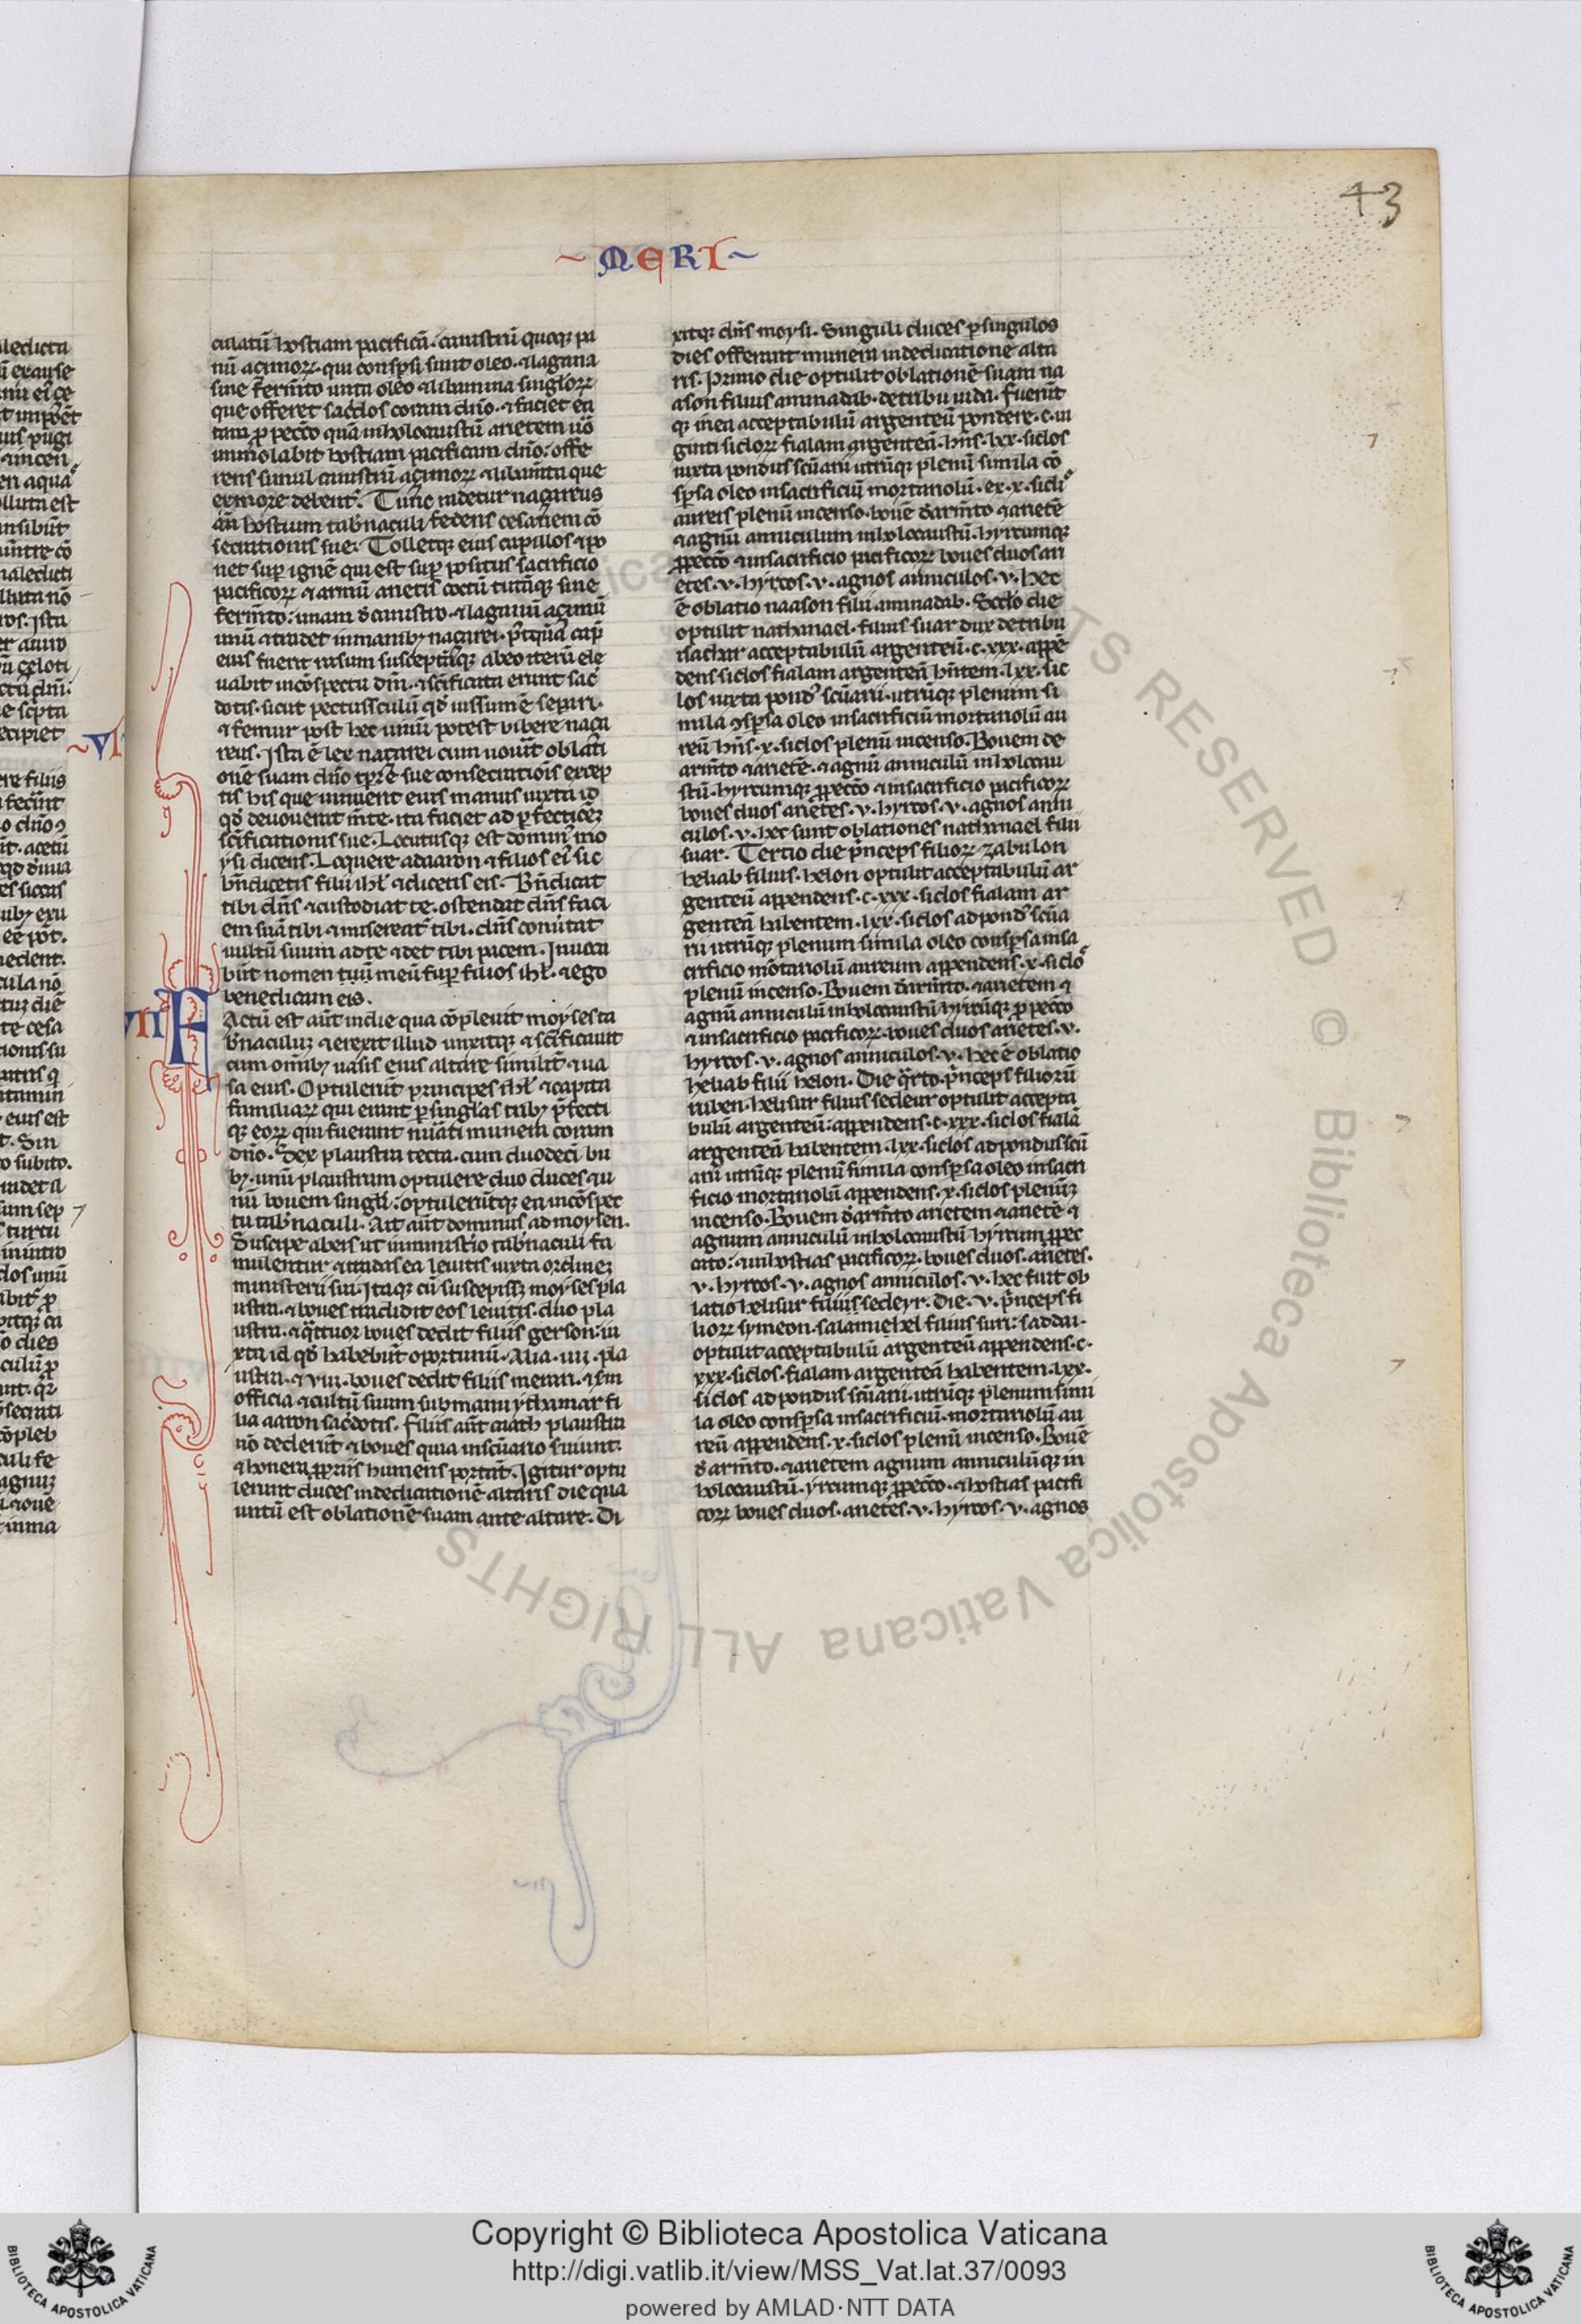 43
~MERI~
culatū hostiam pacificā. canistrū quoqꝫ pa
nū açimoꝝ. qui consꝑsi sunt oleo. ⁊ lagana
sine ferm̄to uncta oleo ⁊ libamina singloꝝ
que offeret sac̄dos coram dn̄o. ⁊ faciet ea
tam ꝓ pecc̄o quā inholocaustū arietem uō
immolabit hostiam pacificam dn̄o: offe
rens simul canistrū açimoꝝ ⁊ libam̄ta que
ex more debent᷑. Tunc radetur naçareus
an̄ hostium tab̄naculi federis cesariem cō
secrationis sue. Tolletqꝫ eius capillos ⁊ po
net suꝑ ignē qui est suꝑ positus sacrificio
pacificoꝝ ⁊ armū arietis coctū tortāqꝫ sine
ferm̄to: unam d̄ canistro. ⁊ laganū açimū
unū ⁊ tradet in manibꝫ naçarei. p̄tquā cap̄
eius fuerit rasum susceptāqꝫ ab eo iterū ele
uabit incōspectu dn̄i. ⁊ sc̄ificata erunt sac̄
dotis. sicut pectusculū qd̄ iussum ē separi.
⁊ femur post hec uinū potest bibere naça
reus. Ista ē lex naçarei cum uouit oblati
onē suam dn̄o tp̄re sue consecrationis excep
tis his que inuenerit eius manus iuxta id
qd̄ deuouerat m̄te. ita faciet ad ꝑfectiōeꝫ
sc̄ificationis sue. Locutusqꝫ est dominꝰ mo
ysi dicens. Loquere ad aaron ⁊ filios eiꝰ sic
bn̄dicetis filii isrl̄ ⁊ dicetis eis. Bn̄dicat
tibi dn̄s ⁊ custodiat te. ostendat dn̄s faci
em suā tibi ⁊ misereat᷑ tibi. dn̄s conu̾tat
uultū suum ad te ⁊ det tibi pacem. Inuoca
būt nomen tuū meū suꝑ filios isrl̄. ⁊ ego
benedicam eis.
VII
FActū est aūt in die qua cōpleuit moyses ta
b̄naculuꝫ ⁊ erexit illud unxitqꝫ ⁊ sc̄ificauit
cum omībꝫ uasis eius altare similit̄ ⁊ ua
sa eius. Optulerūt principes isrl̄ ⁊ capita
familiaꝝ qui erant ꝑ singlas tribꝫ p̄fecti
qꝫ eoꝝ qui fuerant nūati munera coram
dn̄o. Sex plaustra tecta. cum duodecī bu
bꝫ. unū plaustrum optulere duo duces ⁊ u
nū bouem singli: optulerūtqꝫ ea incōspec
tu tab̄naculi. Ait aūt dominus ad moysen.
Suscipe ab eis ut in minist̄io tab̄naculi fa
mulentur ⁊ tradas ea leuitis iuxta ordineꝫ
ministerii sui. Itaqꝫ cū suscepissꝫ moyses pla
ustra. ⁊ boues tradidit eos leuitis. duo pla
ustra. ⁊ q̄ttuor boues dedit filiis gerson: iu
xta id qd̄ habebūt oportunū. Alia .iiii. pla
ustra. ⁊ viii. boues dedit filiis merari. ⁊ sm̄
officia ⁊ cultū suum sub manu ythamar fi
lia aaron sac̄dotis. Filiis aūt caath plaustra
nō dederūt ⁊ boues quia in sc̄uario s̄uiunt:
⁊ honera ꝓpriis humeris portāt. Igitur optu
lerunt duces in dedicationē altaris die qua
unctū est oblationē suam ante altare. Di
xitqꝫ dn̄s moysi. Singuli duces ꝑ singulos
dies offerant munera in dedicatione alta
ris. Primo die optulit oblationē suam na
ason filius aminadab. de tribu iuda. fuerūt
qꝫ in ea acceptabulū argenteū pondere .c. ui
ginti sicloꝝ fialam argenteā. hn̄s .lxx. siclos
iuxta pondus sc̄uarii utrūqꝫ plenū simila cō
sꝑsa oleo in sacrificiū mortariolū .ex .x. sicli
aureis plenū incenso. bouē d̄ arm̄to ⁊ arietē
⁊ agnū anniculum in holocaustū. hyrcumqꝫ
ꝓ pecc̄o ⁊ in sacrificio pacificoꝝ boues duos ari
etes .v. hyrcos .v. agnos anniculos .v. hec
ē oblatio naason filii aminadab. Sc̄do die
optulit nathanael. filius suar dux de tribu
isachar acceptabulū argenteū .c.xxx. appē
dens siclos fialam argenteā hn̄tem .lxx. sic
los iuxta pondꝰ sc̄uarii. utrūqꝫ plenum si
mila ꝯsꝑsa oleo in sacrificiū mortariolū au
reū hn̄s .x. siclos plenū incenso. Bouem de
arm̄to ⁊ arietē. ⁊ agnū anniculū in holocau
stū. hyrcumqꝫ ꝓ pecc̄o ⁊ in sacrificio pacificoꝝ
boues duos arietes .v. hyrcos .v. agnos anni
culos .v. hec sunt oblationes nathanael filii
suar. Tertio die p̄nceps filioꝝ zabulon
heliab filius. helon optulit acceptabulū ar
genteū appendens .c.xxx. siclos fialam ar
genteā habentem .lxx. siclos ad pondꝰ scūa
rii utrūqꝫ plenum simila oleo consꝑsa in sa
crificio mōtariolū aureum appendens .x. siclo
plenū incenso. Bouem d̄ arm̄to. ⁊ arietem ⁊
agnū anniculū in holocaustū hyrcūqꝫ ꝓ pecc̄o
⁊ in sacrificio pacificoꝝ. boues duos arietes .v.
hyrcos .v. agnos anniculos .v. hec ē oblatio
heliab filii helon. Die q̄rto. p̄nceps filiorū
ruben. helisur filius sedeur optulit accepta
bulū argenteū: appendens .c.xxx. siclos fialā
argenteā habentem .lxx. siclos ad pondus scū
arii utrūqꝫ plenū simila consꝑsa oleo in sacri
ficio mortariolū appendens .x. siclos plenūꝫ
incenso. Bouem d̄ arm̄to arietem ⁊ arietē ⁊
agnum anniculū in holocaustū hyrcum ꝓ pec
cato: ⁊ in hostias pacificoꝝ. boues duos. arietes.
v. hyrcos .v. agnos anniculos .v. hec fuit ob
latio helisur filiis sedeyr. Die .v. p̄nceps fi
lioꝝ symeon. salamiehel filius suri: saddai.
optulit acceptabulū argenteū appendens .c.
xxx. siclos. fialam argenteā habentem .lxx.
siclos ad pondus sc̄uarii. utrūqꝫ plenum simi
la oleo consꝑsa in sacrificiū. mortariolū au
reū appendens .x. siclos plenū incenso. Bouē
d̄ arm̄to. ⁊ arietem agnum anniculūqꝫ in
holocaustū. yrcumqꝫ ꝓ pecc̄o. ⁊ hostias pacifi
coꝝ boues duos. arietes .v. hyrcos .v. agnos
Copyright © Biblioteca Apostolica Vaticana
http://digi.vatlib.it/view/MSS_Vat.lat.37/0093
powered by AMLAD·NTT DATA
BIBLIOTECA APOSTOLICA VATICANA
BIBLIOTECA APOSTOLICA VATICANA